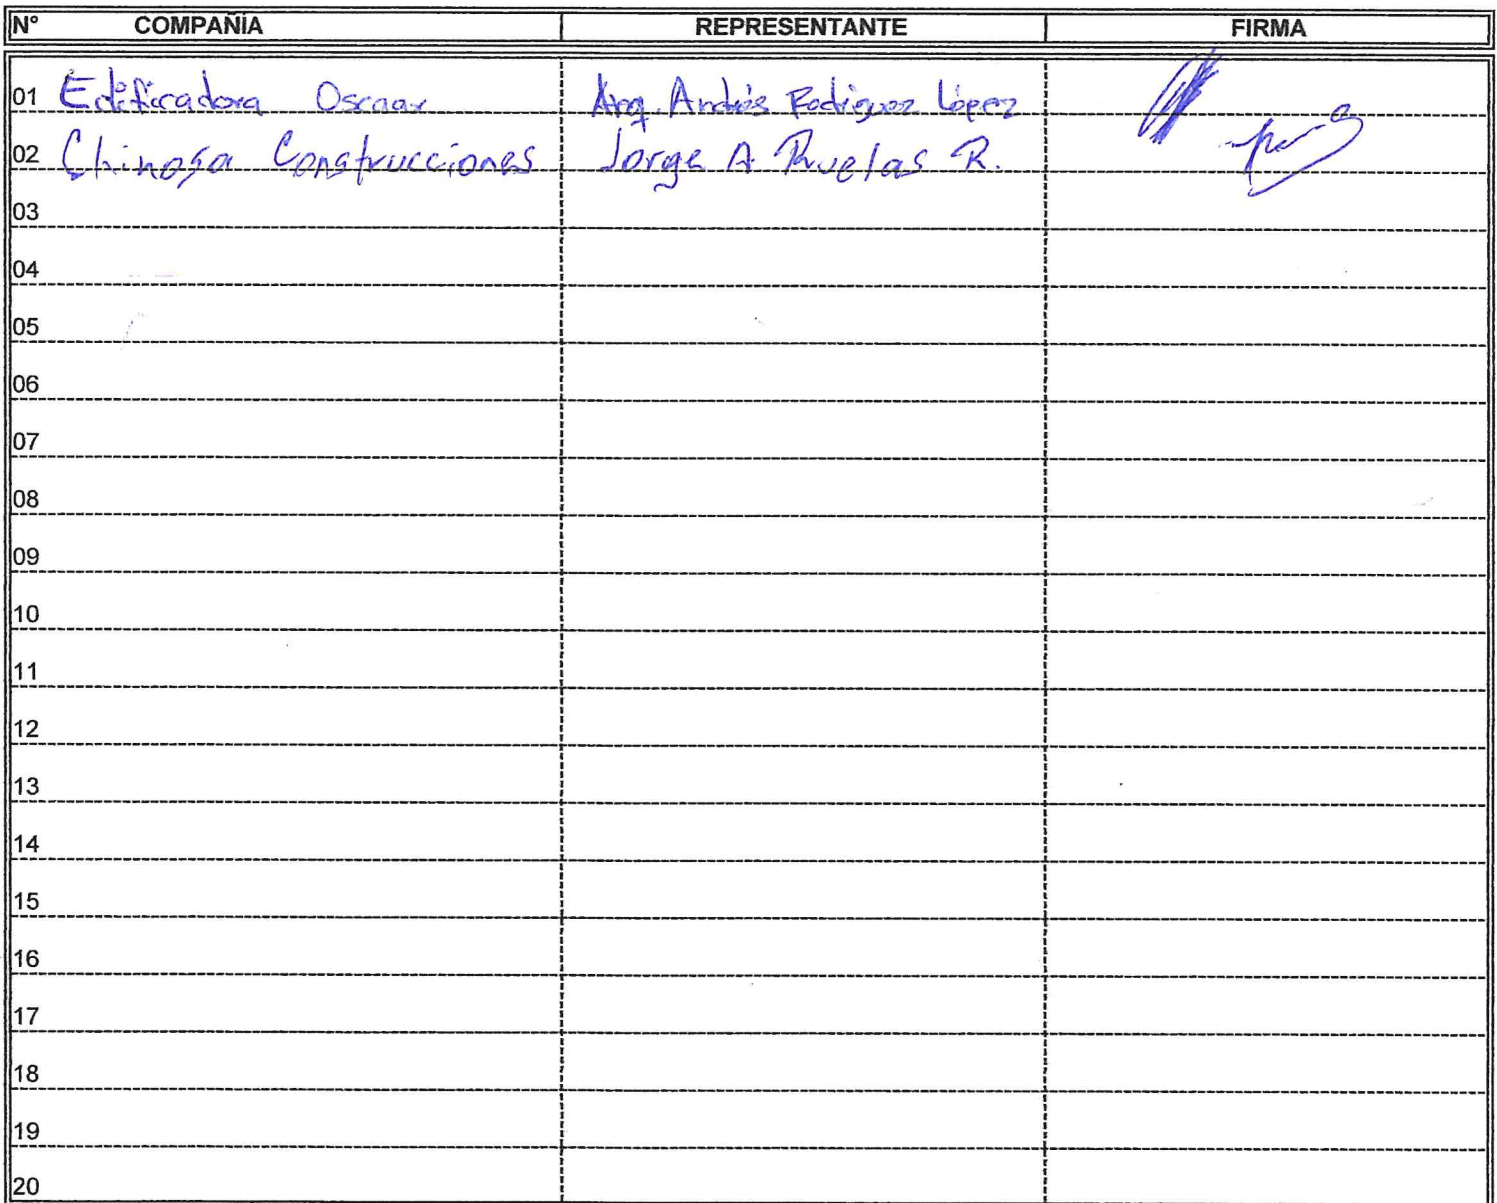 N° COMPAÑÍA REPRESENTANTE FIRMA
01 Edificadora Oscaar Arq. Andrés Rodriguez López
02 Chinosa Construcciones Jorge A Ruelas R.
03
04
05
06
07
08
09
10
11
12
13
14
15
16
17
18
19
20